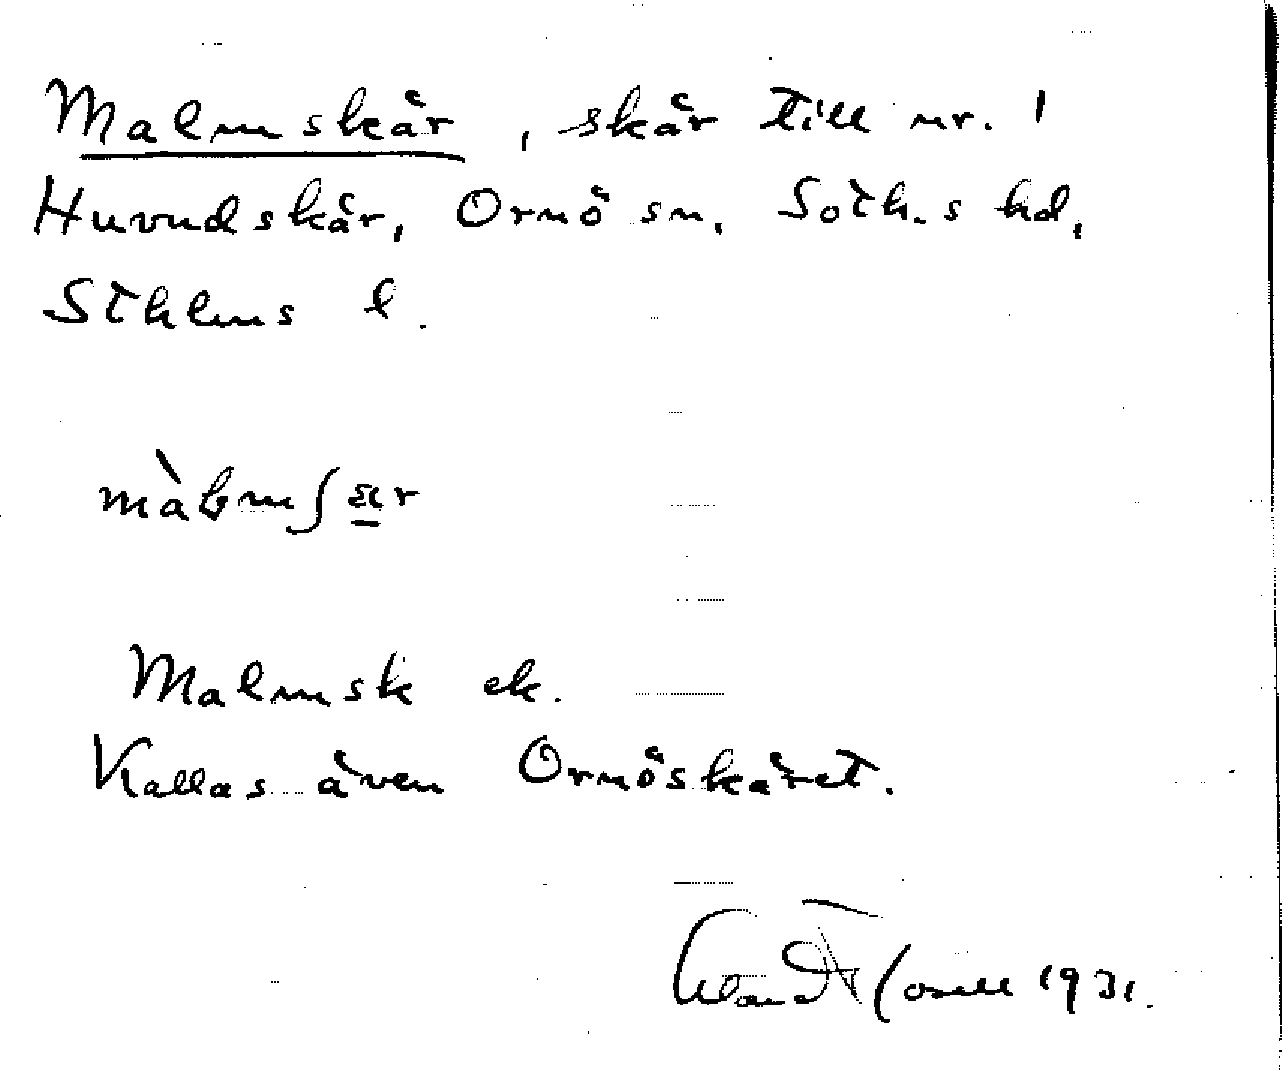 Malmskär, skär till nr. 1
Huvudskär, Ornö sn, Soth.s hd,
Sthlms l.
Malmsk ek.
Kallas även Ornöskäret.
1931.